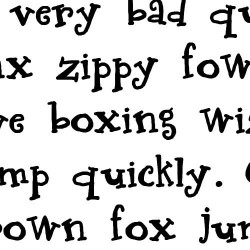 very bad qu
x zippy fow
e boxing wi
mp quickly.
own fox jum